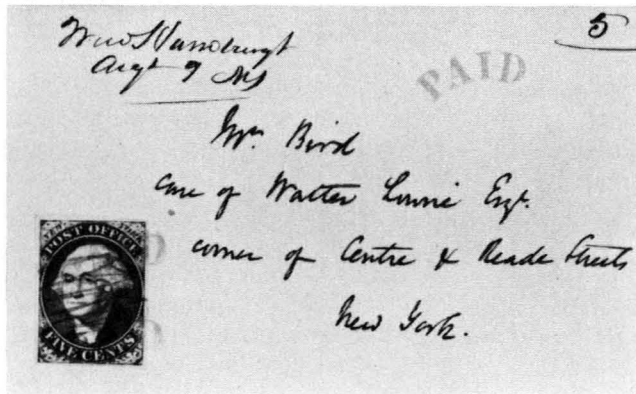 5
PAID
Augt 9
Mr. Bird
care of Walter Lowrie Esqr.
corner of Centre & Reade Streets
New York.
POST OFFICE
FIVE CENTS